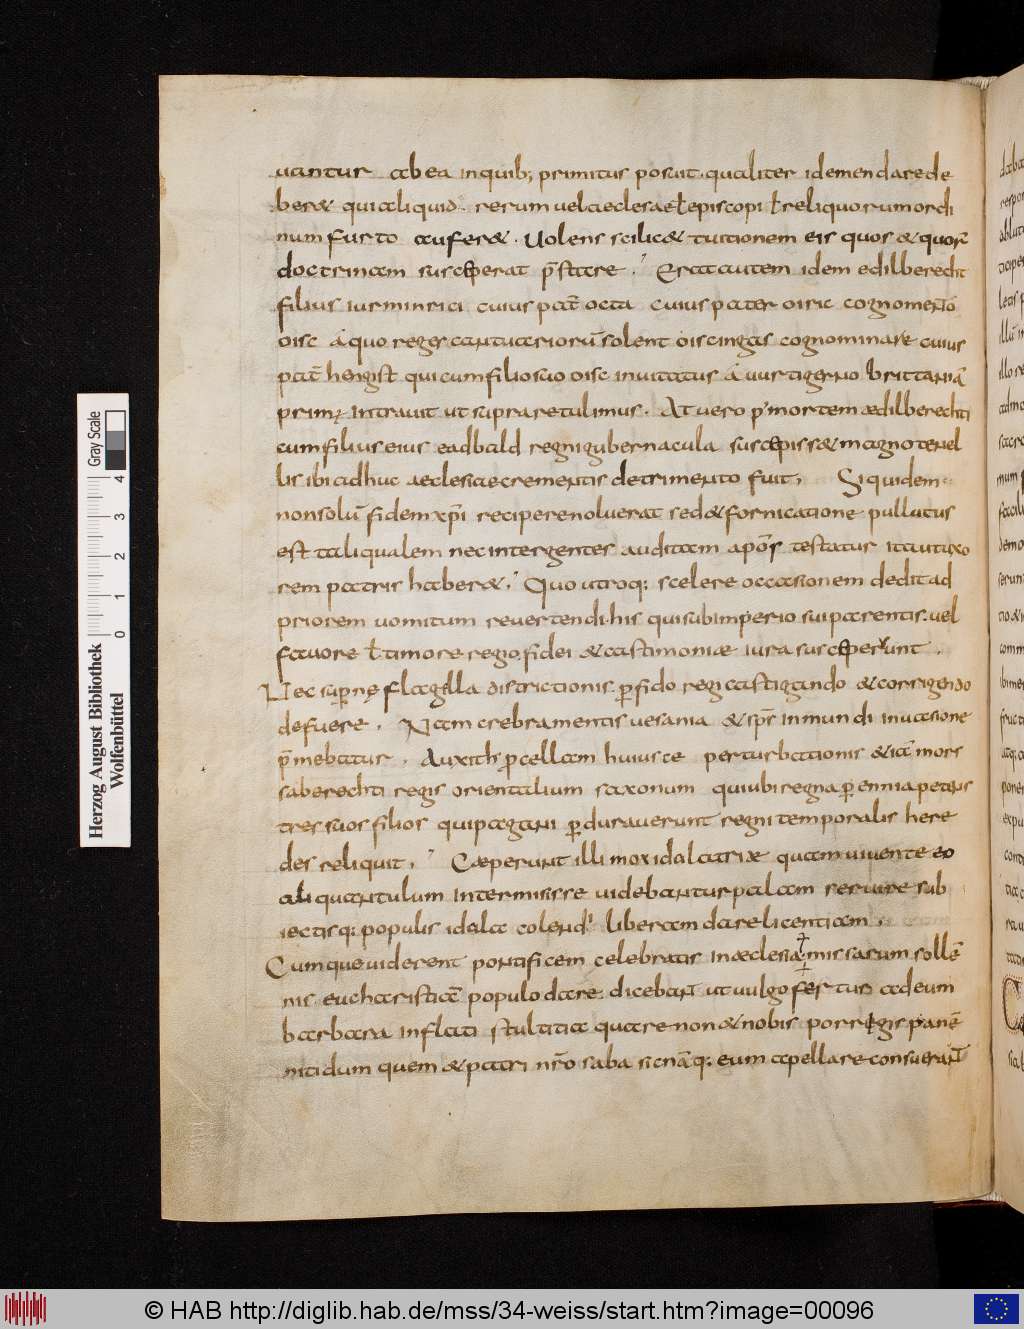 uantur ab ea inquib; primitus posuit. qualiter id emendare de
ber& qui aliquid rerum uel aeclesiae ł episcopi ł reliquorum ordi
num furto aufer&. Uolens scilic& tuitionem eis quos & quorū
doctrinam susceperat p̄stare. Erat autem idem edilberecht
filius iurminrici cuius pat̄ octa cuius pater oiric cognomento
oisc a quo reges cantuariorū solent oiscingas cognominare cuius
pat̄ hengist qui cum filio suo oisc inuitatus a uurtigerno brittaniā
primę intrauit ut supra retulimus. At uero p' mortem ædilberechti
cum filius eius eadbald regni gubernacula suscepiss& magno tenel
lis ibi adhuc aeclesiae crementis detrimento fuit. Siquidem
non solū fidem xp̄i recipere noluerat sed & fornicatione pullutus
est tali qualem nec inter gentes auditam apōs testatur ita ut uxo
rem patris haber&. Quo utroq; scelere occasionem dedit ad
priorem uomitum reuertendi. his qui sub imperio sui parentis. uel
fauore ł timore regio. fidei & castimoniæ iura susceperunt.
Nec supernę flagella districtionis perfido regi castigando & corrigendo
defuere. Nam crebra mentis uesania & sp̄r inmundi inuasione
p̄mebatur. Auxith procellam huiusce perturbationis &iā mors
saberechti regis orientalium saxonum qui ubi regna perennia petens
tres suos filios qui pagani perdurauerunt regni temporalis here
des reliquit. Cæperunt illi mox idalatriæ quam uiuente eo
aliquantulum intermisisse uidebantur palam seruire sub
iectisq; populis idola colend' liberam dare licentiam.
Cumque uiderent pontificem celebratis in æclesia missarum sollē
nis eucharisticā populo dare. dicebant ut uulgo fertur ad eum
barbara inflati stultitia quare non & nobis porregis panē
nitidum quem & patri nr̄o saba sic nāq; eum apellare consuerant
Gray Scale
0 1 2 3 4
Herzog August Bibliothek
Wolfenbüttel
© HAB http://diglib.hab.de/mss/34-weiss/start.htm?image=00096